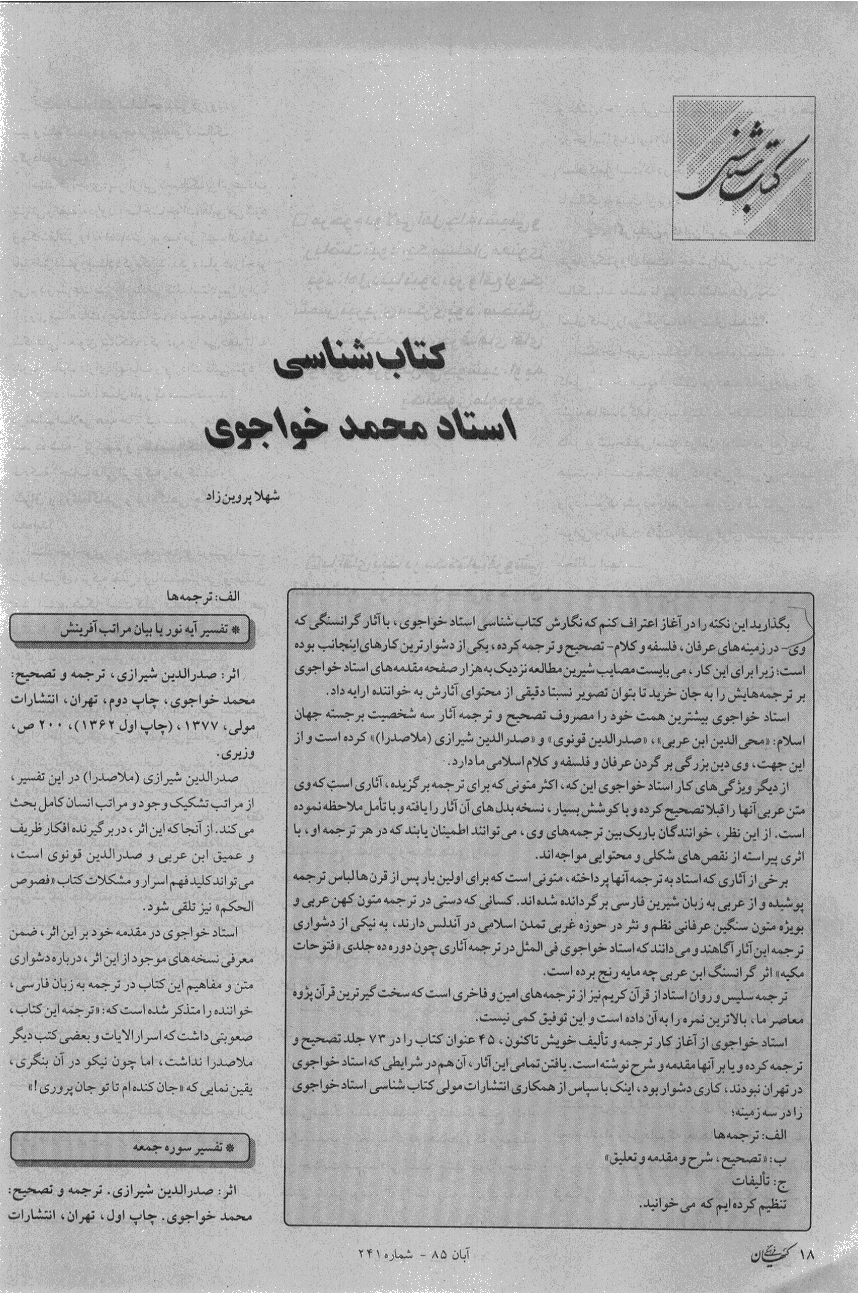 کتاب‌شناسی
کتاب‌شناسی
استاد محمد خواجوی
شهلا پروین‌زاد
بگذارید این نکته را در آغاز اعتراف کنم که نگارش کتاب شناسی استاد خواجوی، با آثار گرانسنگی که
وی- در زمینه‌های عرفان، فلسفه و کلام- تصحیح و ترجمه کرده، یکی از دشوارترین کارهای اینجانب بوده
است؛ زیرا برای این کار، می‌بایست مصایب شیرین مطالعه نزدیک به هزار صفحه مقدمه‌های استاد خواجوی
بر ترجمه‌هایش را به جان خرید تا بتوان تصویر نسبتا دقیقی از محتوای آثارش به خواننده ارایه داد.
استاد خواجوی بیشترین همت خود را مصروف تصحیح و ترجمه آثار سه شخصیت برجسته جهان
اسلام: «محی الدین ابن عربی»، «صدرالدین قونوی» و «صدرالدین شیرازی (ملاصدرا)» کرده است و از
این جهت، وی دین بزرگی بر گردن عرفان و فلسفه و کلام اسلامی ما دارد.
از دیگر ویژگی‌های کار استاد خواجوی این که، اکثر متونی که برای ترجمه برگزیده، آثاری است که وی
متن عربی آنها را قبلا تصحیح کرده و با کوشش بسیار، نسخه بدل‌های آن آثار را یافته و با تأمل ملاحظه نموده
است. از این نظر، خوانندگان باریک‌بین ترجمه‌های وی، می‌توانند اطمینان یابند که در هر ترجمه او، با
اثری پیراسته از نقص‌های شکلی و محتوایی مواجه‌اند.
برخی از آثاری که استاد به ترجمه آنها پرداخته، متونی است که برای اولین بار پس از قرن‌ها لباس ترجمه
پوشیده و از عربی به زبان شیرین فارسی برگردانده شده‌اند. کسانی که دستی در ترجمه متون کهن عربی و
بویژه متون سنگین عرفانی نظم و نثر در حوزه غربی تمدن اسلامی در آندلس دارند، به نیکی از دشواری
ترجمه این آثار آگاهند و می‌دانند که استاد خواجوی فی المثل در ترجمه آثاری چون دوره ده جلدی «فتوحات
مکیه» اثر گرانسنگ ابن عربی چه مایه رنج برده است.
ترجمه سلیس و روان استاد از قرآن کریم نیز از ترجمه‌های امین و فاخری است که سخت گیرترین قرآن پژوه
معاصر ما، بالاترین نمره را به آن داده است و این توفیق کمی نیست.
استاد خواجوی از آغاز کار ترجمه و تألیف خویش تاکنون، ۴۵ عنوان کتاب را در ۷۳ جلد تصحیح و
ترجمه کرده و یا بر آنها مقدمه و شرح نوشته است. یافتن تمامی این آثار، آن هم در شرایطی که استاد خواجوی
در تهران نبودند، کاری دشوار بود، اینک با سپاس از همکاری انتشارات مولی کتاب شناسی استاد خواجوی
را در سه زمینه؛
الف: ترجمه‌ها
ب: «تصحیح، شرح و مقدمه و تعلیق»
ج: تألیفات
تنظیم کرده‌ایم که می خوانید.
الف: ترجمه‌ها
* تفسیر آیه نور یا بیان مراتب آفرینش
اثر: صدرالدین شیرازی، ترجمه و تصحیح:
محمد خواجوی، چاپ دوم، تهران، انتشارات
مولی، ۱۳۷۷، (چاپ اول ۱۳۶۲)، ۲۰۰ ص،
وزیری.
صدرالدین شیرازی (ملاصدرا) در این تفسیر،
از مراتب تشکیک وجود و مراتب انسان کامل بحث
می‌کند. از آنجا که این اثر، دربرگیرنده افکار ظریف
و عمیق ابن عربی و صدرالدین قونوی است،
می‌تواند کلید فهم اسرار و مشکلات کتاب «فصوص
الحکم» نیز تلقی شود.
استاد خواجوی در مقدمه خود بر این اثر، ضمن
معرفی نسخه‌های موجود از این اثر، درباره دشواری
متن و مفاهیم این کتاب در ترجمه به زبان فارسی،
خواننده را متذکر شده است که: «ترجمه این کتاب،
صعوبتی داشت که اسرارالایات و بعضی کتب دیگر
ملاصدرا نداشت، اما چون نیکو در آن بنگری،
یقین نمایی که «جان کنده‌ام تا تو جان پروری!»
* تفسیر سوره جمعه
اثر: صدرالدین شیرازی. ترجمه و تصحیح:
محمد خواجوی. چاپ اول، تهران، انتشارات
۱۸ کیهان فرهنگی
آبان ۸۵ - شماره ۲۴۱